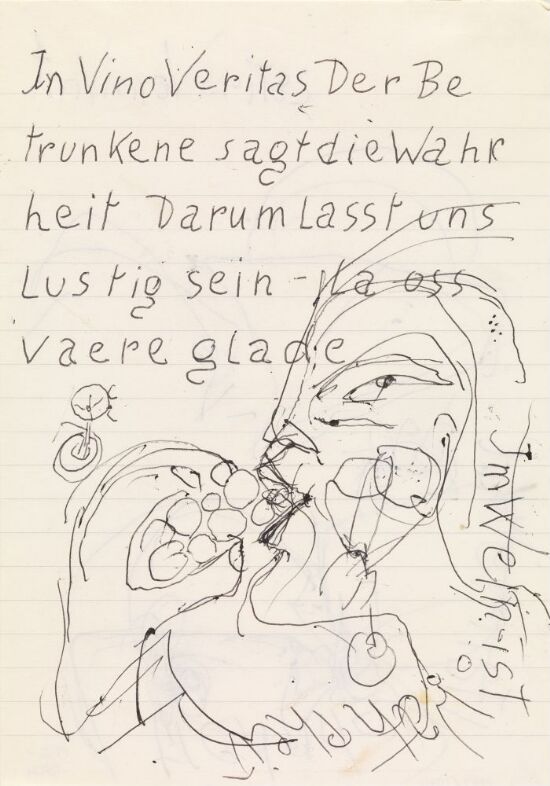 In Vino Veritas Der Be
trunkene sagt die Wahr
heit Darum Lasst uns
Lustig sein - la oss
vaere glade
Im Wein-ist